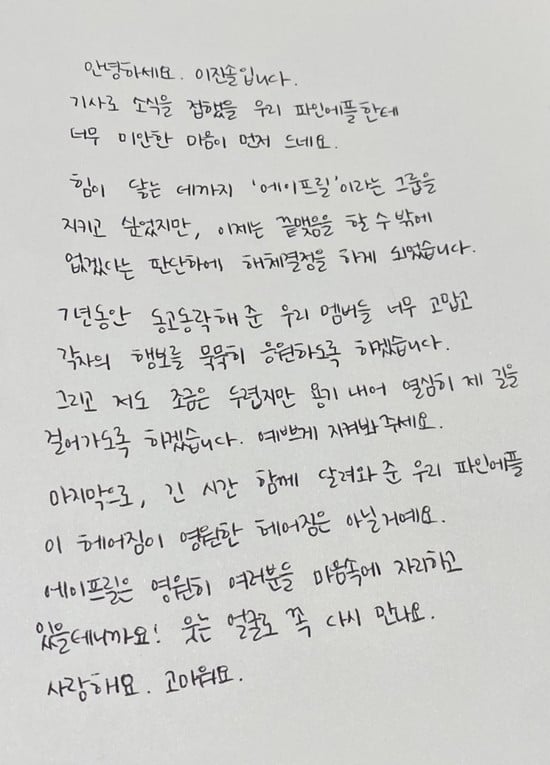 안녕하세요. 이진솔입니다.
기사로 소식을 접했을 우리 파인에플한테
너무 미안한 마음이 먼저 드네요.
힘이 닿는 데까지 '에이프릴'이라는 그룹을
지키고 싶었지만, 이제는 끝맺음을 할 수 밖에
없겠다는 판단하에 해체결정을 하게 되었습니다.
7년동안 동고동락해 준 우리 멤버들 너무 고맙고
각자의 행보를 묵묵히 응원하도록 하겠습니다.
그리고 저도 조금은 두렵지만 용기 내어 열심히 제 길을
걸어가도록 하겠습니다. 예쁘게 지켜봐 주세요.
마지막으로, 긴 시간 함께 달려와 준 우리 파인에플
이 헤어짐이 영원한 헤어짐은 아닐거예요.
에이프릴은 영원히 여러분을 마음속에 자리하고
있을테니까요! 웃는 얼굴로 꼭 다시 만나요.
사랑해요. 고마워요.